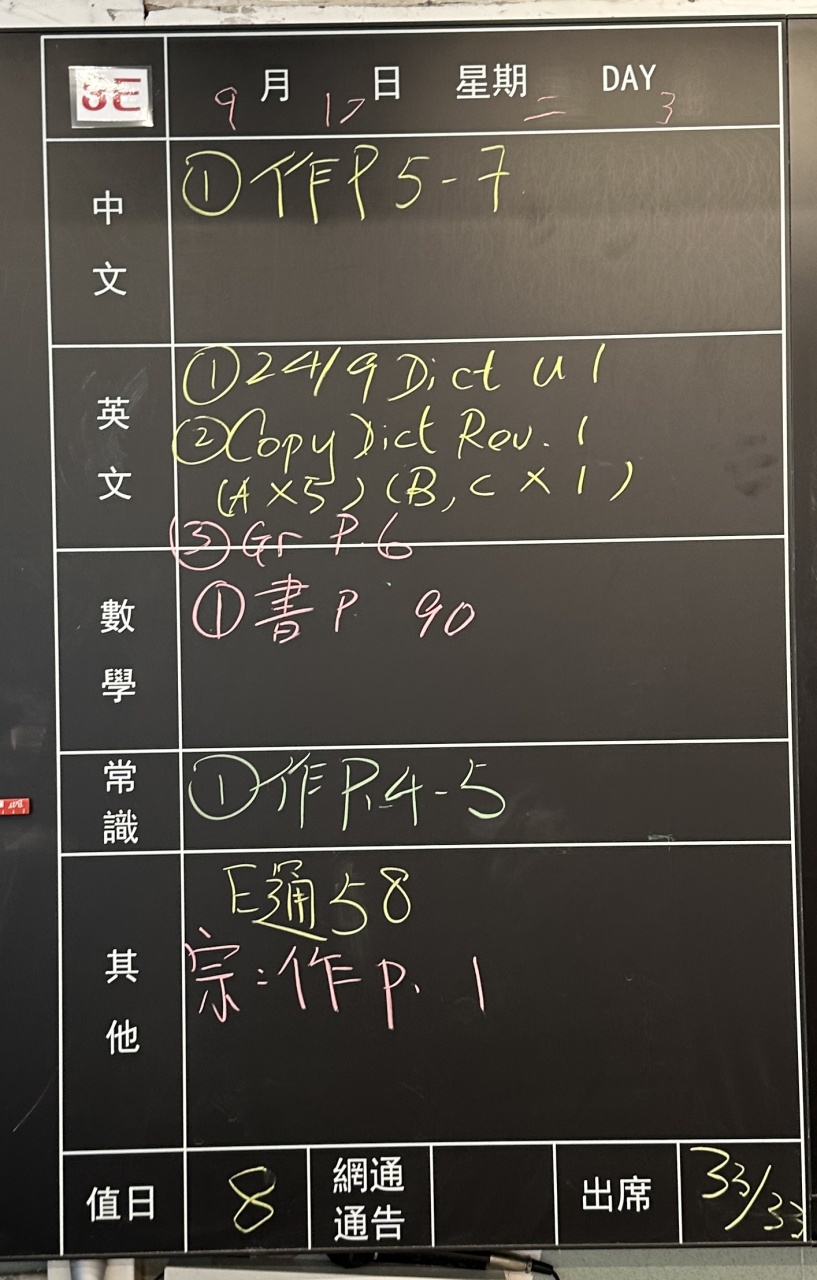 9月17日 星期二 DAY 3
中文
①作P 5-7
英文
①24/9 Dict U 1
②Copy Dict Rev. 1
(A×5) (B, C × 1)
③Gr P.6
數學
①書P 90
常識
①作P.4-5
其他
E通58
宗:作P. 1
值日 8 網通通告 出席 33/33